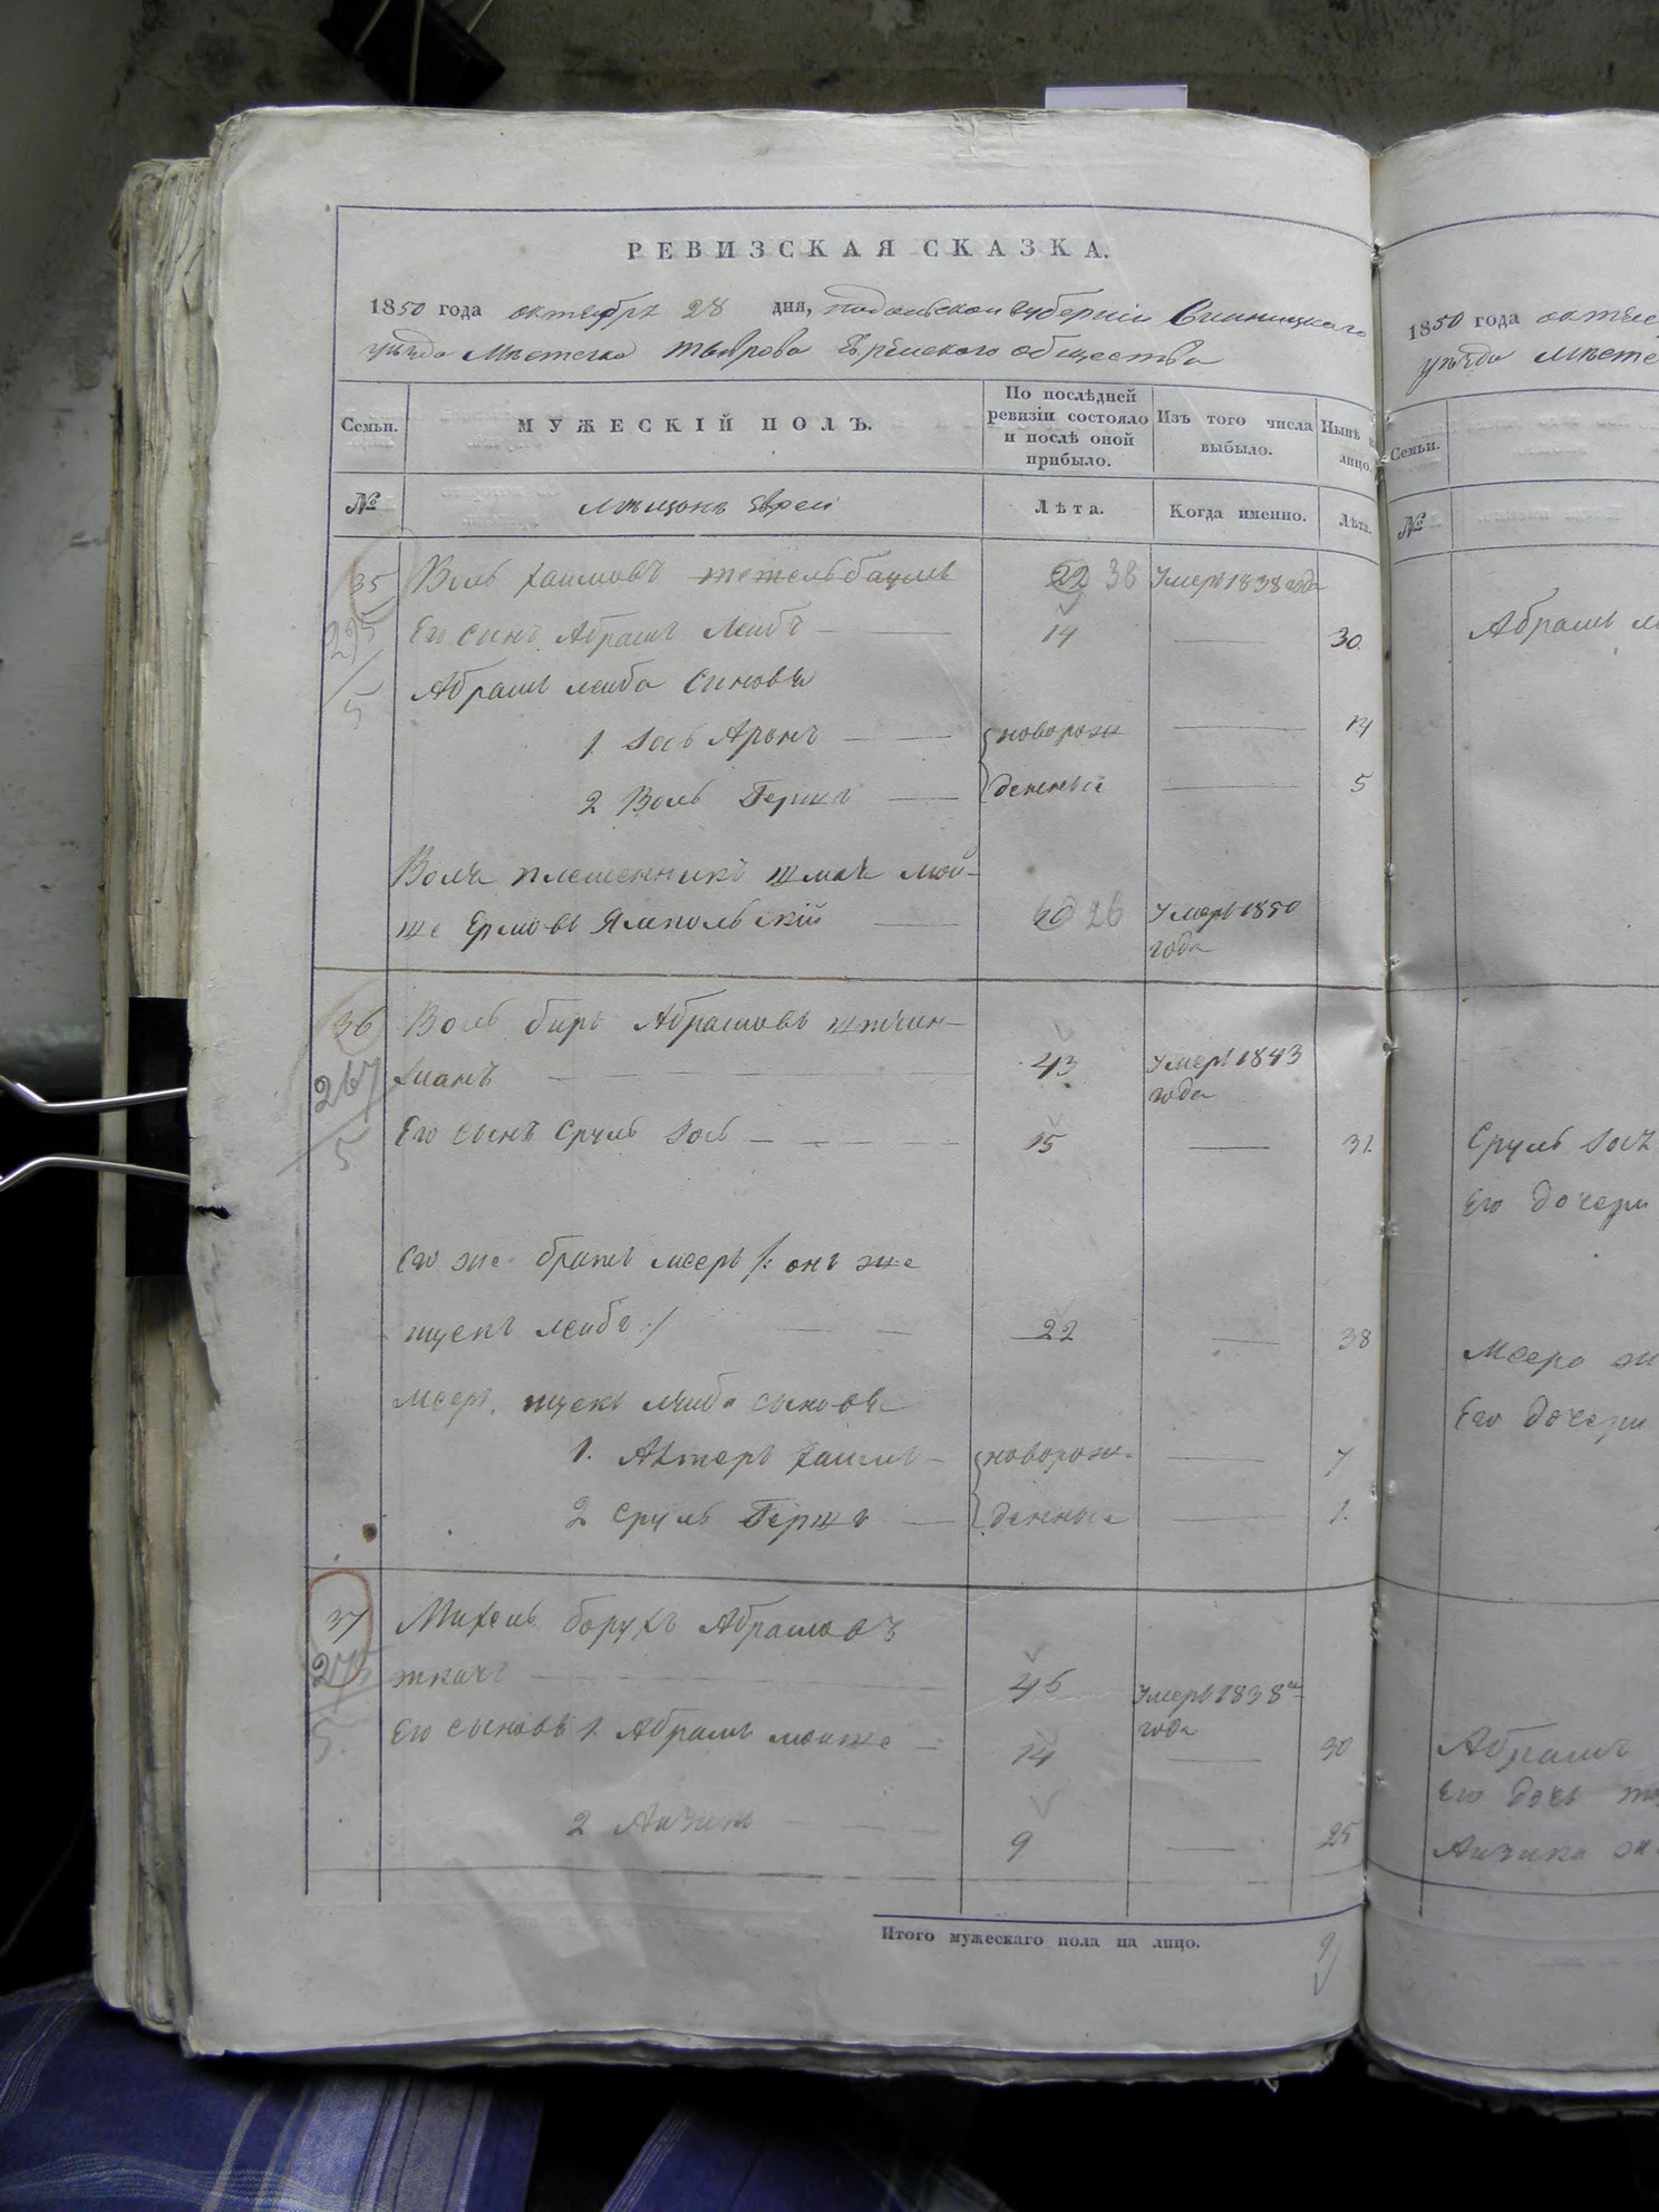 РЕВИЗСКАЯ СКАЗКА.
1850 года октября 28 дня, подольской губерніи Винницкаго
уѣзда Мѣстечка тыврова Еврейского общества
Семьи.
МУЖЕСКІЙ ПОЛЪ.
По послѣдней ревизіи состояло и послѣ оной прибыло.
Изъ того числа выбыло.
Нынѣ лицо.
№
мѣщанъ Евреи
Лѣта.
Когда именно.
Лѣта.
35 Воль хаимовъ тетельбаумъ 22 38 Умеръ 1838 года
225 Его сынъ Абрамъ Лейбъ 14 30.
5 Абрамъ лейба сыновья
1 Іось Аронъ новорож 14
2 Воль Гершъ денные 5
Воля племенникъ шмая мой-
ше Ермовъ Ямпольскій 10 26 Умеръ 1850
года
36 Воль биръ Абрамовъ
267 хманъ 43 Умеръ 1843
года
5 Его сынъ Сруль Іось 15 31.
Его же братъ мееръ /: онъ же
ицекъ лейбъ :/ 22 38
мееръ ицекъ лейба сыновья
1. Алтеръ хаимъ новорож. 7
2 Сруль Гершъ денные 1.
37 Михель борухъ Абрамовъ
275 ткачъ 45 Умеръ 1838го
года
5 Его сыновья 1. Абрамъ мойше 14 30
2 Айзикъ 9 25
Итого мужескаго пола на лицо. 9
1850 года
уѣзда мѣсте
Семьи.
№
Абрамъ
Сруль Іося
Его дочери
Меера
Его дочери
Абрамъ
Его дочь
Айзика